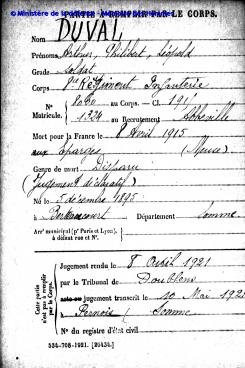 © Ministère de la
PARTIE À REMPLIR PAR LE CORPS.
Nom DUVAL
Prénoms Arthur, Philibert, Léopold
Grade Soldat
Corps Régiment Infanterie
N° Matricule. 1080 au Corps. — Cl. 191
1324 au Recrutement Abbeville
Mort pour la France le 8 Avril 1915
aux Eparges (Meuse)
Genre de mort Disparu
(Jugement déclaratif)
Né le 5 décembre 1895
à Département Somme
Arr' municipal (p' Paris et Lyon),
à défaut rue et N°.
Cette partie n'est pas à remplir par le Corps.
Jugement rendu le 8 Avril 1921
par le Tribunal de Doullens
jugement transcrit le 10 Mai 1921
à Pernois (Somme)
N° du registre d'état civil
534-708-1921. [26434.]